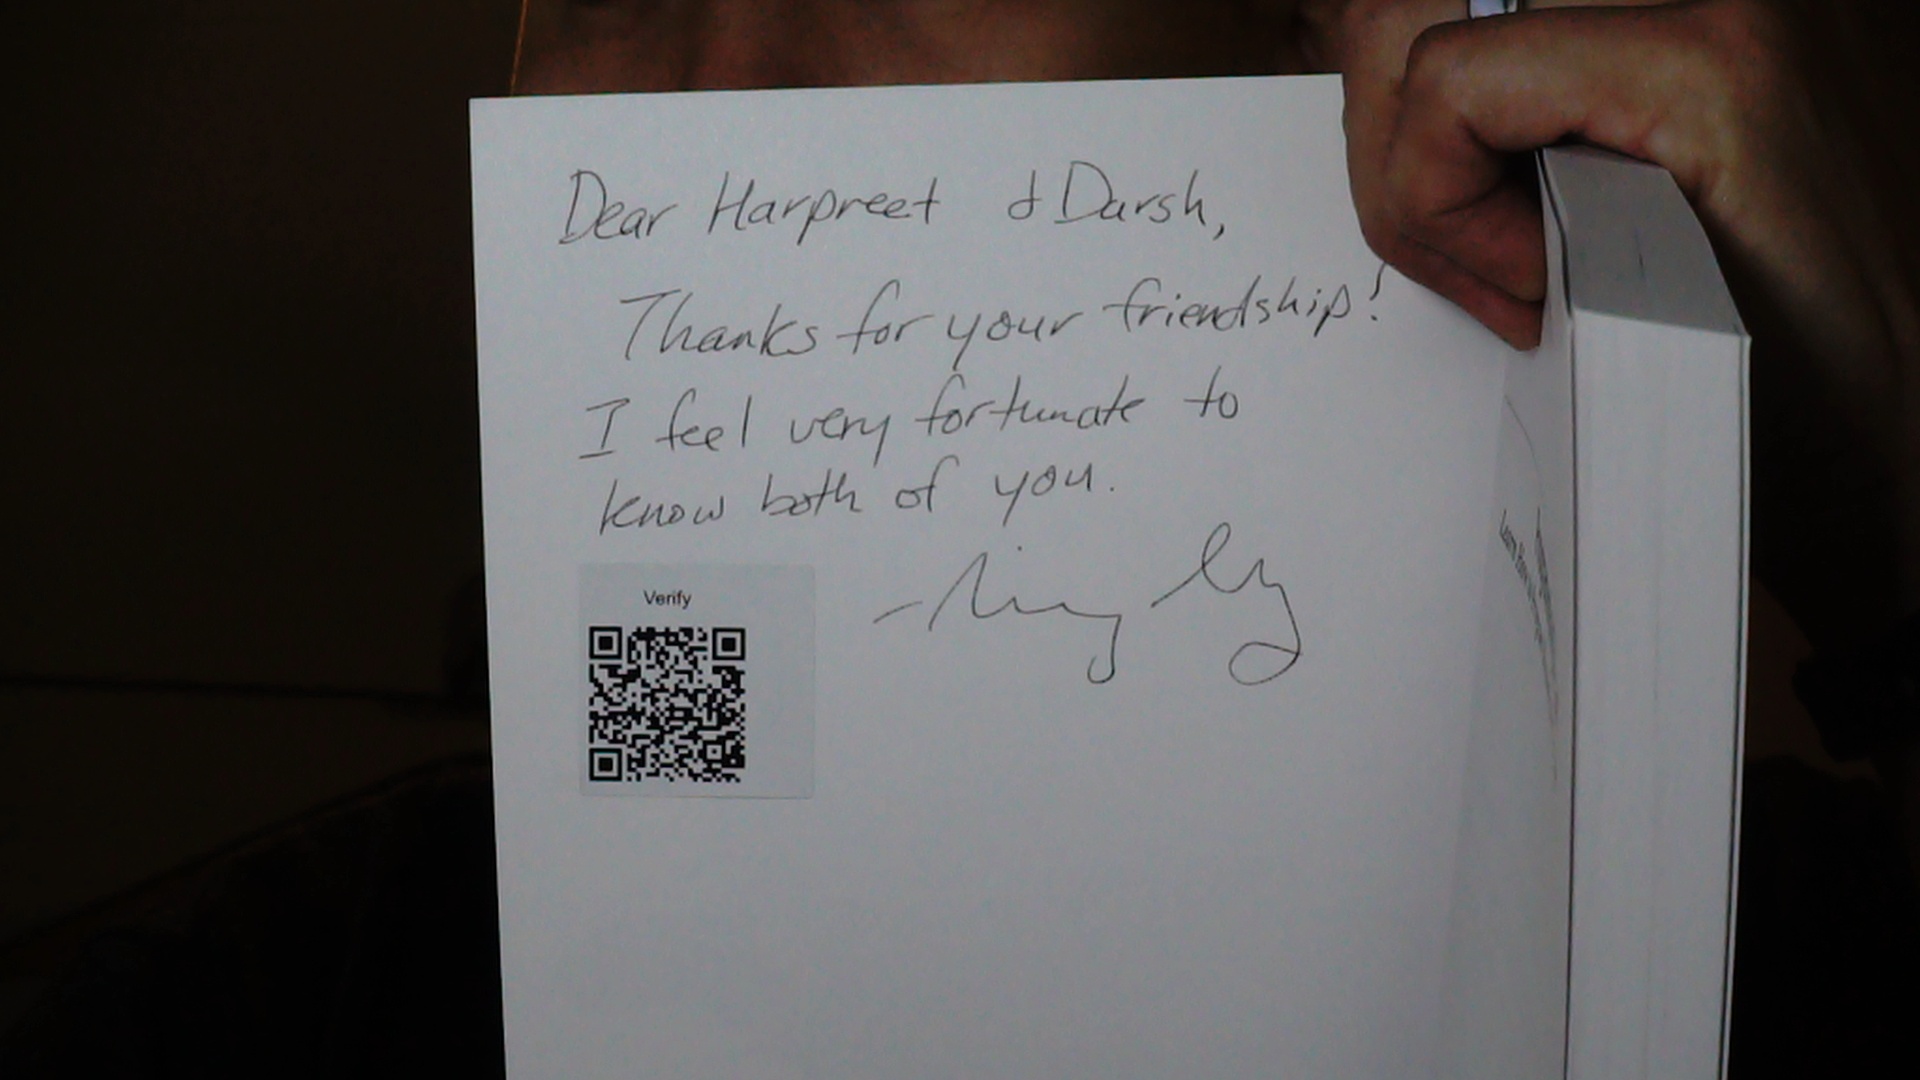 Dear Harpreet & Darsh,
Thanks for your friendship!
I feel very fortunate to
know both of you.
Verify